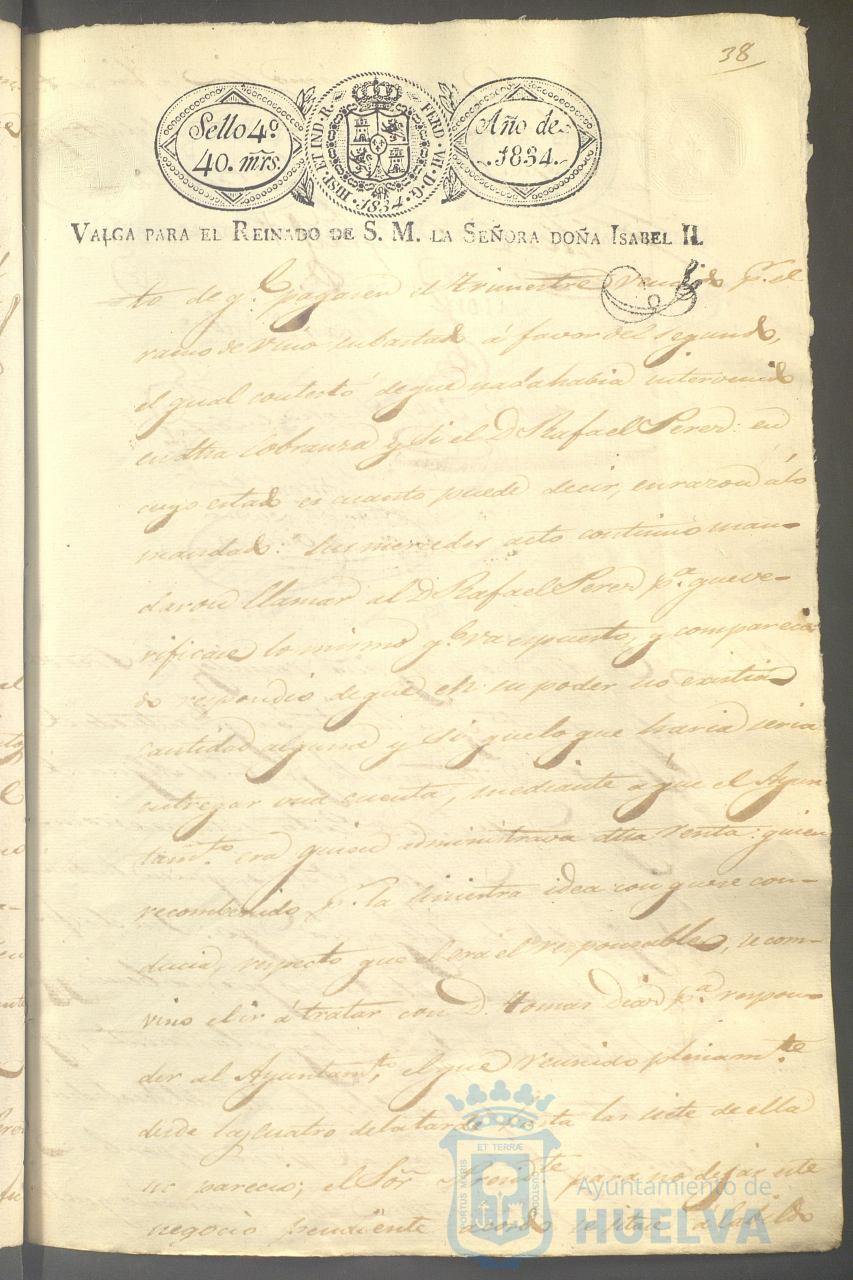 38
Sello 4º
40. mrs.
HISP. ET IND. R. FERD. VII. D. G.
1834
Año de
1834.
VALGA PARA EL REINADO DE S. M. LA SEÑORA DOÑA ISABEL II.
to de q.e pagasen el trimestre vencido p.r el
ramo de vino subastado á favor del segundo,
el qual contestó de que nada habia intervenido
en dha cobranza y si el D. Rafael Perez: en
cuyo estado es cuanto puede decir, en razon á lo
mandado. Sus mercedes acto continuo man-
daron llamar al D. Rafael Perez p.a que ve-
rificase lo mismo q.e va espuesto, y compareci
do respondio de que en su poder no existia
cantidad alguna y si que lo que haria seria
entregar una cuenta, mediante á que el Ayun
tam.to era quien administrava dha renta: quien
recombenido p.r la siniestra idea con que se con-
ducia, respecto que el era el responsable, se com-
vino el ir á tratar con D. Tomas Diaz p.a respon-
der al Ayuntam.to, el que reunido plenam.te
desde las cuatro de la tarde hasta las siete de ella
no parecio; el Sor. Presid.te para no dejar este
negocio pendiente acordo se cite á Cabildo
PORTUS MARIS ET TERRÆ CUSTODIA
Ayuntamiento de
HUELVA